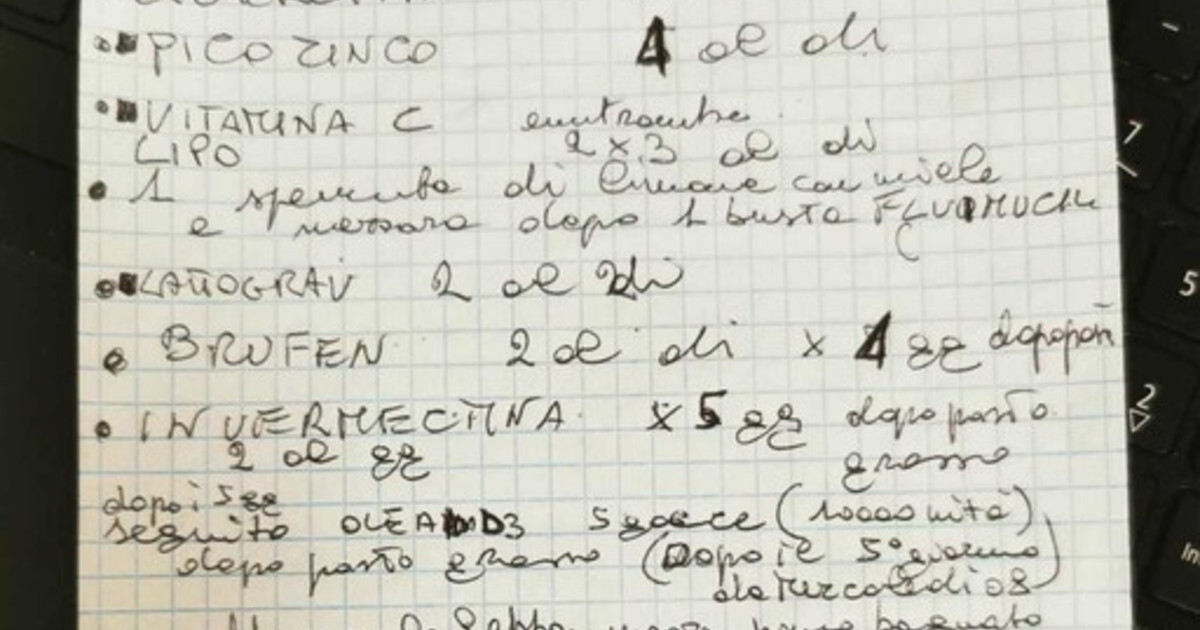 PICOZINCO 4 al dì
VITAMINA C entrambe
LIPO 2 x 3 al dì
1 spremuta di limone con miele
e mezzora dopo 1 busta FLUIMUCIL
2 al dì
BRUFEN 2 al dì x 4 gg dopo pasti
INVERMECTINA x 5 gg dopo pasto
2 al gg grasso
dopo i 5 gg
seguito OLEA D3 5 gocce (10000 unità)
dopo pasto grasso (Dopo il 5° giorno
da Mercoledi 08)